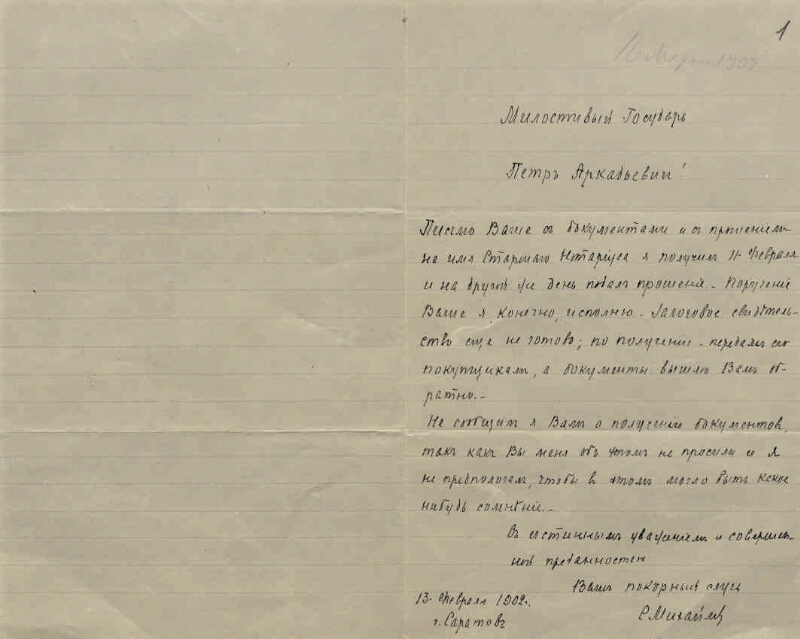 1
16 Марта 1902
Милостивый Государь
Петръ Аркадьевич!
Письмо Ваше съ документами и съ прошеніемъ
на имя Старшаго Нотаріуса я получилъ 11 Февраля
и на другой же день подалъ прошеніе. Порученіе
Ваше я, конечно, исполню. Залоговое свидѣтель-
ство еще не готово; по полученіи - передамъ его
покупщикамъ, а документы вышлю Вамъ об-
ратно.
Не сообщилъ я Вамъ о полученіи документов,
такъ какъ Вы меня объ этомъ не просили и я
не предполагалъ, чтобы в этомъ могло быть какое
нибудь сомнѣніе.
Съ истиннымъ уваженіемъ и совершен-
ной преданностью
Вашъ покорный слуга
13 Февраля 1902 г.
г. Саратовъ
С Михайлов